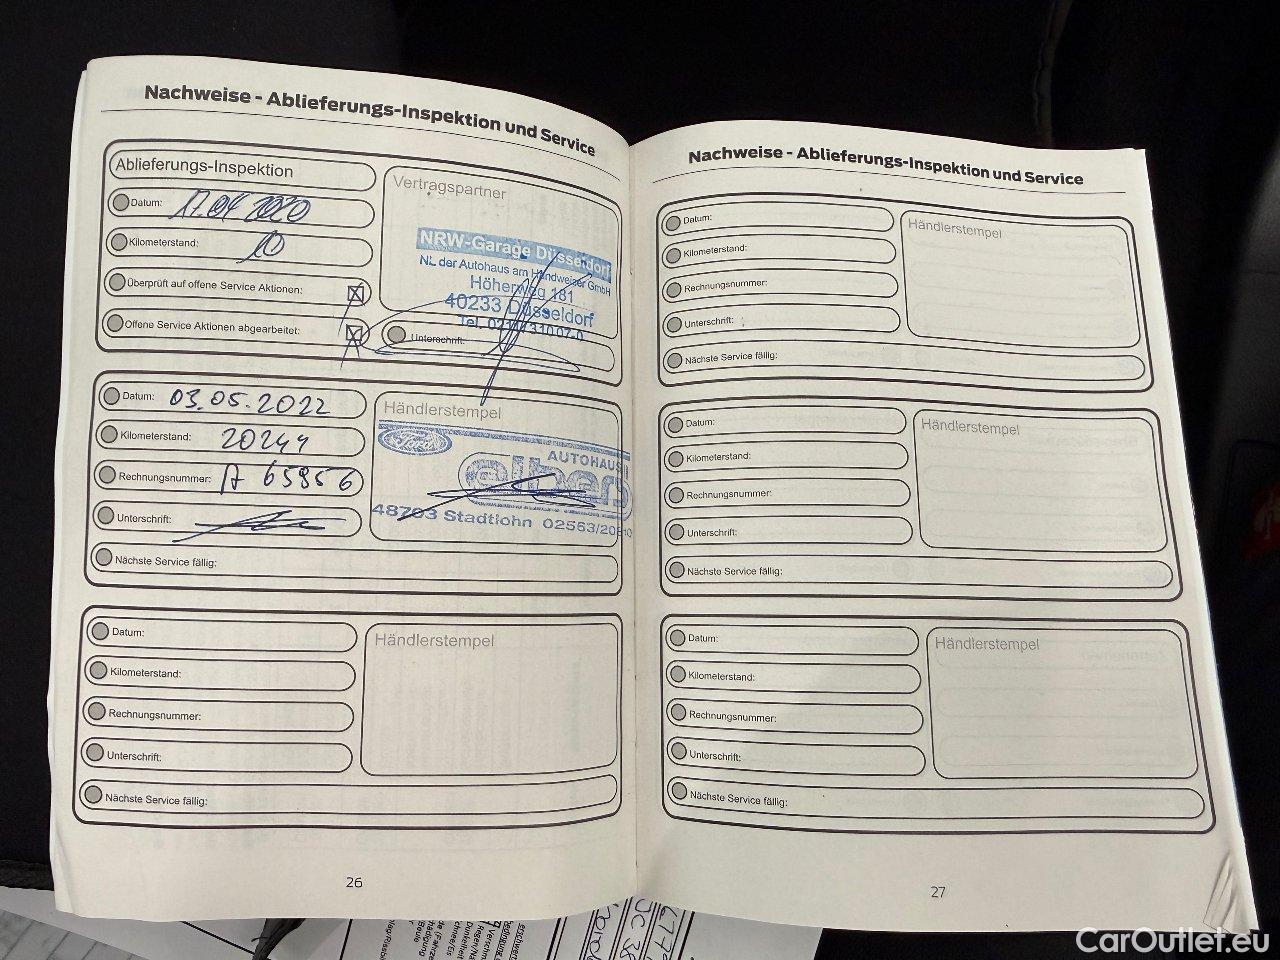 Nachweise - Ablieferungs-Inspektion und Service
Ablieferungs-Inspektion
Datum: 17.04 2020
Kilometerstand: 10
Überprüft auf offene Service Aktionen: X
Offene Service Aktionen abgearbeitet: X
Vertragspartner
NRW-Garage Düsseldorf
NL der Autohaus am Handweiser GmbH
Höherweg 181
40233 Düsseldorf
Unterschrift:
Datum: 03.05.2022
Kilometerstand: 20244
Rechnungsnummer: A 65856
Unterschrift:
Nächste Service fällig:
Händlerstempel
Ford
AUTOHAUS
48703 Stadtlohn 02563/20
Datum:
Kilometerstand:
Rechnungsnummer:
Unterschrift:
Nächste Service fällig:
Händlerstempel
26
Nachweise - Ablieferungs-Inspektion und Service
Datum:
Kilometerstand:
Rechnungsnummer:
Unterschrift:
Nächste Service fällig:
Händlerstempel
Datum:
Kilometerstand:
Rechnungsnummer:
Unterschrift:
Nächste Service fällig:
Händlerstempel
Datum:
Kilometerstand:
Rechnungsnummer:
Unterschrift:
Nächste Service fällig:
Händlerstempel
27
CarOutlet.eu